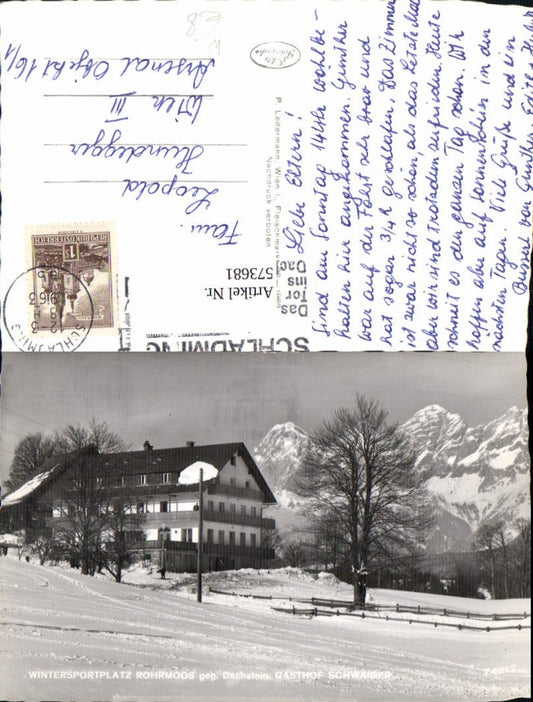 Liebe Eltern!
Sind am Sonntag 14 Uhr wohlbe-
halten hier angekommen. Günther
war auf der Fahrt sehr brav und
hat sogar 3/4 geschlafen. Das Zimmer
ist zwar nicht so schön als das letzte Mal
aber wir sind trotzdem zufrieden. Heute
schneit es den ganzen Tag schon. Wir
hoffen aber auf Sonnenschein in den
nächsten Tagen. Viele Grüße und ein
Busserl von Günther, Edith
P. Ledermann, Wien I., Fleischmarkt
Nachdruck verboten
Das
Tor
ins
Dac
SCHLADMING
Artikel Nr.
573681
REPUBLIK ÖSTERREICH
SCHLADMING
Fam.
Leopold
Hundegger
Wien III
Arsenal Objekt 16/1
WINTERSPORTPLATZ ROHRMOOS geg. Dachstein, GASTHOF SCHWAIGER
74217